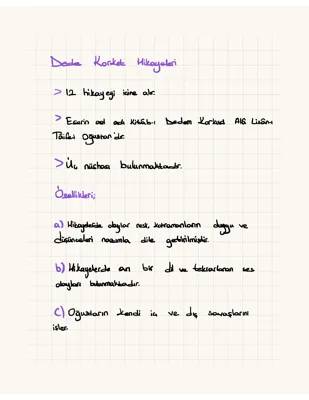 Dede Korkut Hikayeleri
> 12 hikayeyi içine alır.
> Eserin asıl adı Kitâb-ı Dedem Korkud Alâ Lisân-ı
Tâife-i Oğuzan'dır.
> Üç nüshası bulunmaktadır.
Özellikleri;
a) Hikayelerde olaylar nesir, kahramanların duygu ve
düşünceleri nazımla dile getirilmiştir.
b) Hikayelerde arı bir dil ve tekrarlanan ses
olayları bulunmaktadır.
C) Oğuzların kendi iç ve dış savaşlarını
işler.